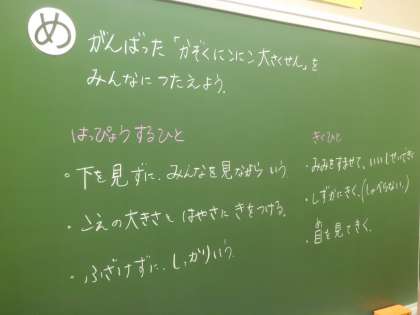 め
がんばった「かぞくにこにこ大さくせん」を
みんなにつたえよう。
はっぴょうするひと
・下を見ずに、みんなを見ながら いう
・こえの大きさと はやさに きをつける。
・ふざけずに、しっかりいう。
きくひと
・みみをすませて、いいしせいできく
・しずかにきく。(しゃべらない。)
め
・目を見てきく。